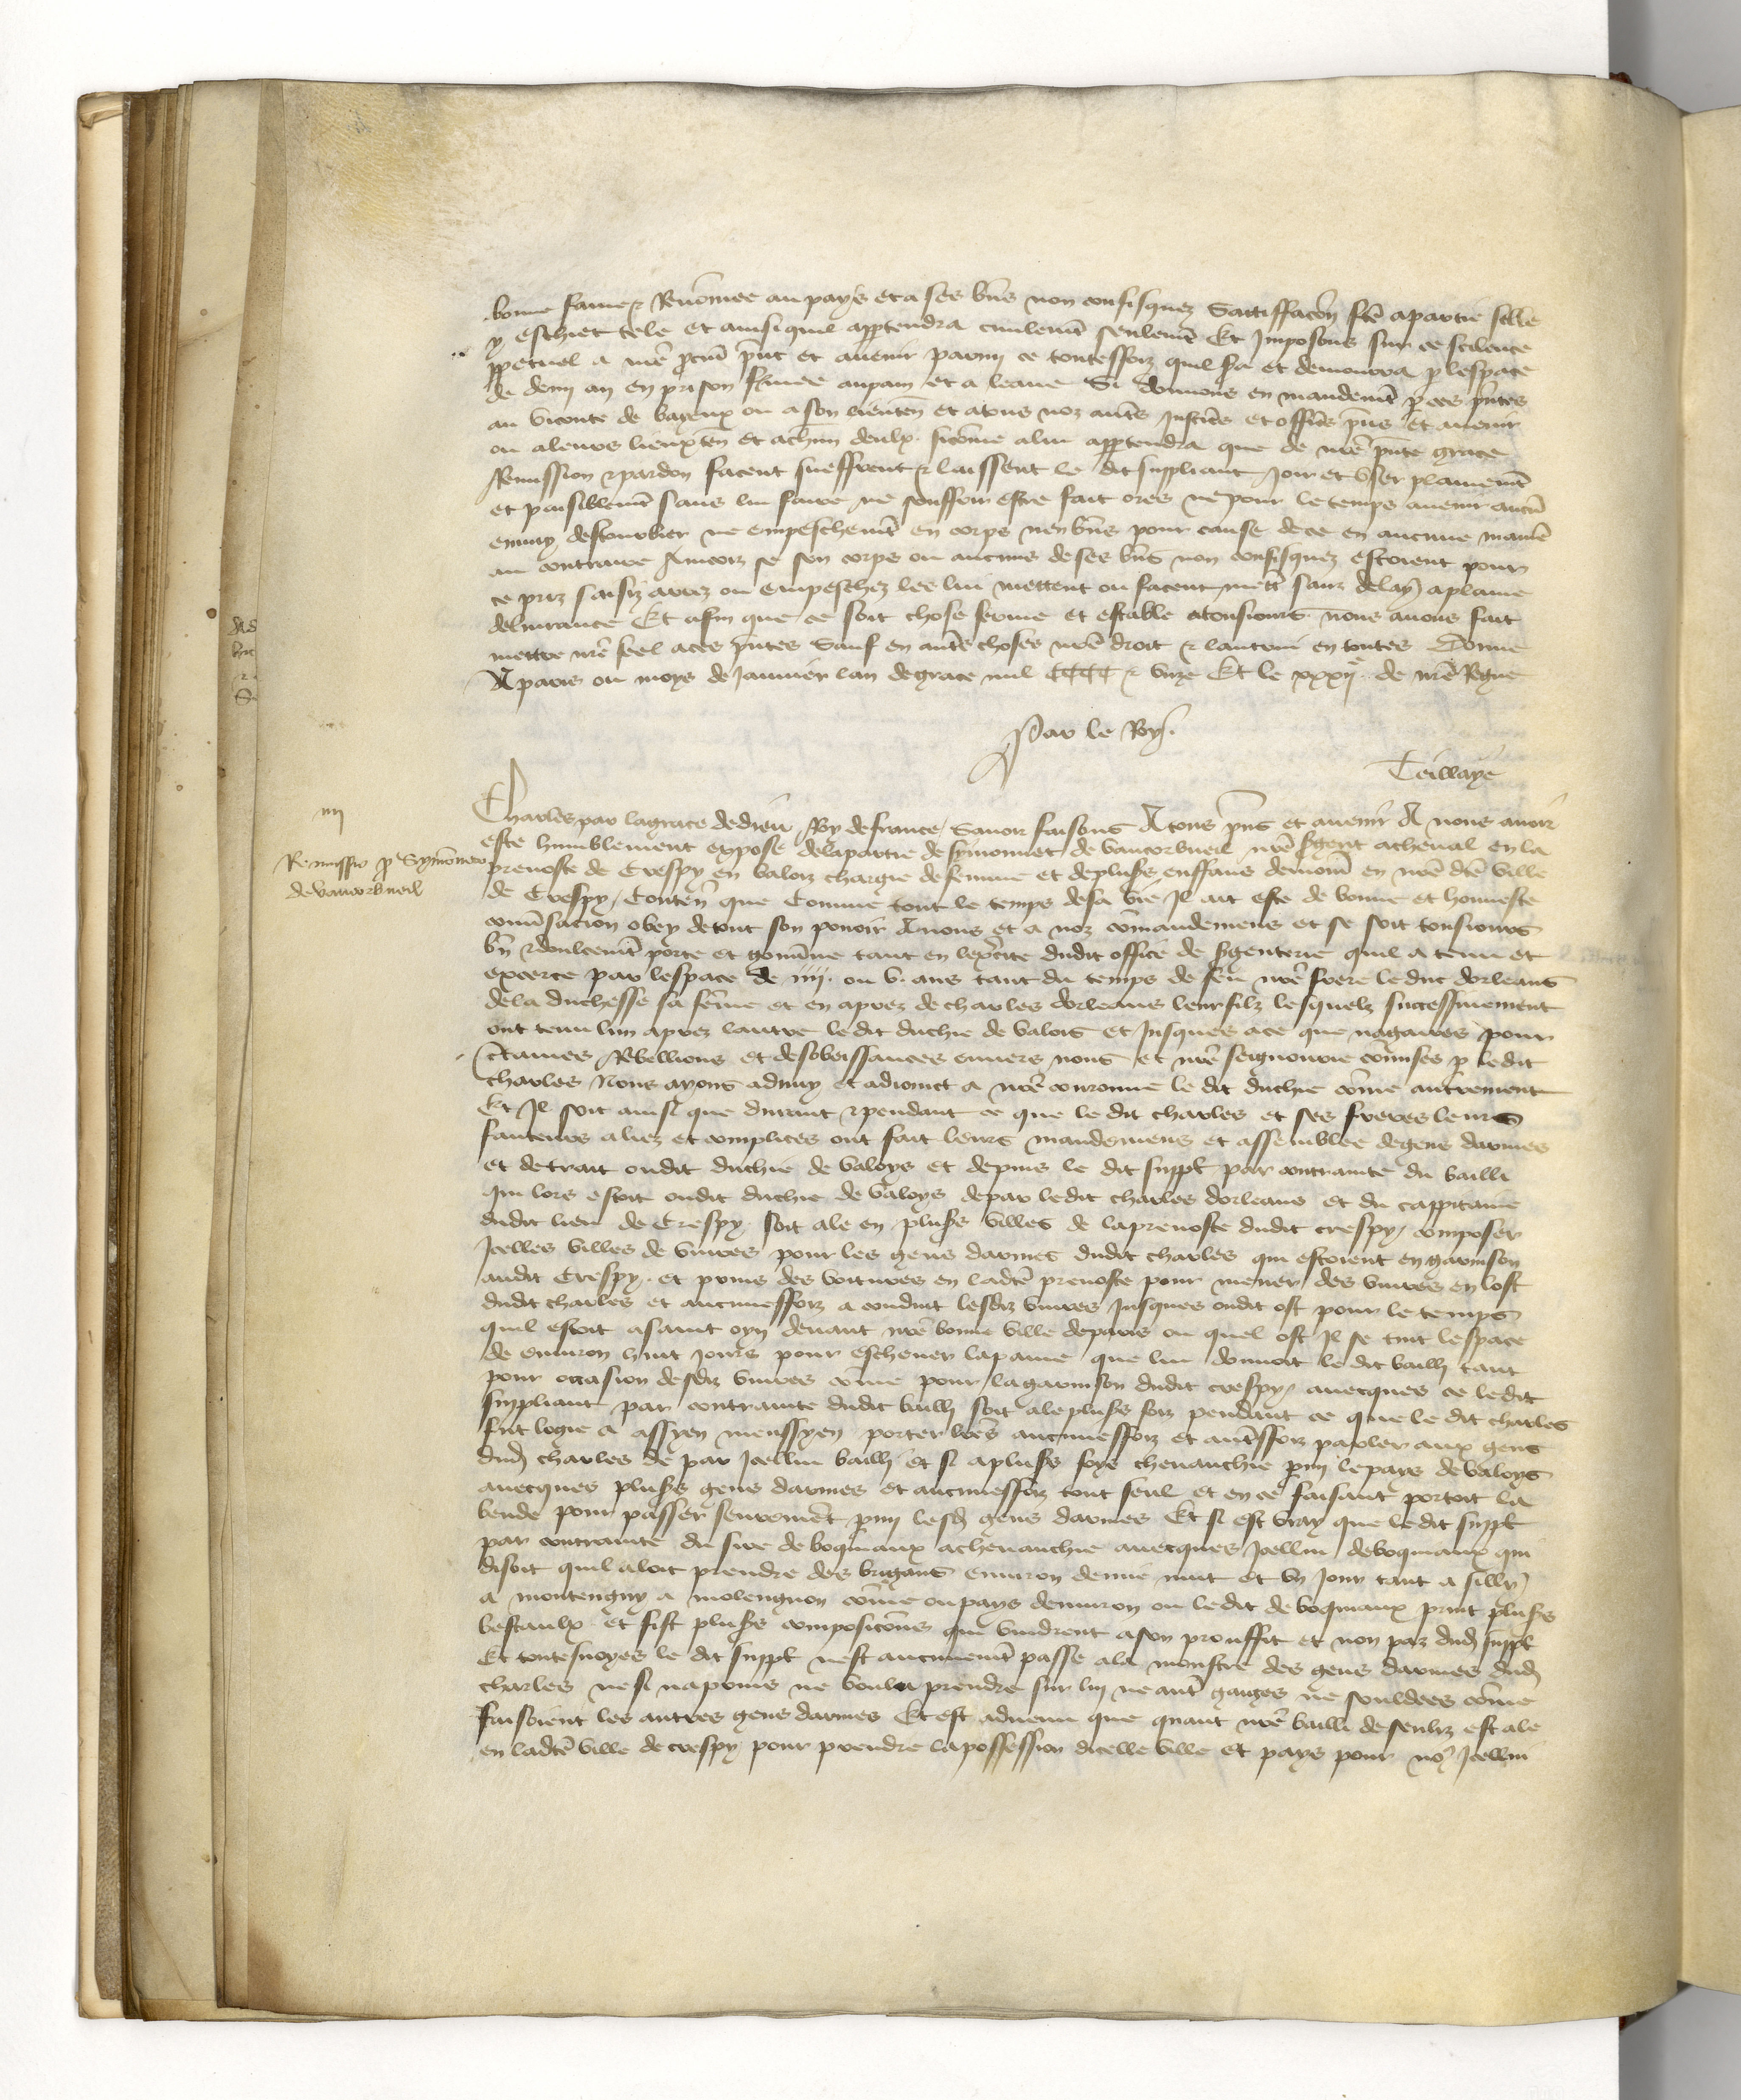 bonne fame & Renommee au pays et a ses bn̄s non confisquez Satiffacōn fte apartie selle
y eschiet tele et ainsi quil appartendra civilemt seulemt Et Imposons sur ce scilence
ppetuel a nr̄e ꝓcur̄ pn̄t et avenir parmy ce toutesfoiz quil sera et demourra p lespace
de demy an en prison fermee au pain et a leaue Si donnons en mandemt p ces pn̄tes
au viconte de bayeux ou a son lieuten̄ et atous noz autr̄s Justic̄s et offic̄s pn̄s et avenir
ou aleurs lieuxten̄ et achun̄ deulx sicōme alui appartendra que de nr̄e pn̄te grace
Remission & pardon facent sueffrent & laissent le dit suppliant Joir et user plainemt
et paisiblemt sans lui faire ne souffrir estre fait ores ne pour le temps avenir aucū
ennuy destourbier ne empeschemt en corps nen bn̄s pour cause de ce en aucune manie͂
au contraire Aincoiz se son corps ou aucuns de ses bn̄s non confisquez estoient pour
ce priz saisiz arrez ou empeschez lee lui mettent ou facent mett͂ sanz delay aplaine
delivrance Et afin que ce soit chose ferme et estable atousiours nous avons fait
mettre nr̄e seel aces pn̄tes Sauf en autr̄s choses nr̄e droit & lautrui en toutes Donne
A paris ou moys de Janvier lan de grace mil CCCC & unze Et le xxxij.e de nr̄e Regne
Par le Roy.
Teillaye
iiij
Charles par lagrace dedieu Roy de france Savoir faisons A tous pn̄s et avenir A nous avoir
Remissio p Symoneto
de Vaucorbueil
este humblement expose delapartie de symonnet de vaucorbueil nr̄e sergent acheval en la
prevoste de Crespy en Valoiz chargie de femme et de plus͂s enffans demour̄ en nr̄e dt̄e ville
de Crespy / Conten̄ que Comme tout le temps desa vie Il ait este de bonne et honneste
conv̄sacion obey detout son povoir A nous et a noz cōmandemens et se soit tousiours
bn̄ & doulcemt porte et gouv̄ne tant en lex͂cite dudit office de sergenterie quil a tenu et
excerce par lespace de iiij. ou v. ans tant du temps de feu nr̄e frere le duc dorleans
dela duchesse sa fēme et en aprez de charles dorleans leur filz lesquelz successivement
ont tenu lun aprez lautre le dit duchie de valois et Jusques ace que nagaires pour
Ctaines Rebellions et desobeissances envers nous et nr̄e seigneurie cōmises p ledit
charles Nous ayons admny et adioinct a nr̄e couronne le dit duchie cōme autrement
Et Il soit ainsi que durant & pendant ce que le dit charles et ses freres leurs
fauteurs aliez et complices ont fait leurs mandemens et assemblee degens darmes
et detrait oudit duchie de Valoys et depuis le dit supplt par contrainte du bailli
qui lors estoit oudit duchie de Valoys depar ledit charles dorleans et du cappitaine
dudit lieu de Crespy soit ale en plus͂s villes de laprevoste dudit crespy / composer
Icelles villes de vivres pour les gens darmes dudit charles qui estoient en garnison
audit Crespy et prins des voitures en ladt̄e prevoste pour mener des vivres en lost
dudit charles et aucunesfoiz a conduit lesdz vivres Jusques oudit ost pour le temps
quil estoit asaint oyn devant nr̄e bonne ville de paris ou quel ost Il se tint lespace
de environ huit Jours pour eschever lapaine que lui donnoit le dit bailli tant
pour occasion desdz vivres cōme pour lagarnison dudit crespy avecques ce ledit
suppliant par contrainte dudit bailli soit ale plus͂s foiz pendant ce que le dit charles
fut logie a assyen menssyen porter lr̄es aucunesfoiz et autr̄sfoiz parler aux gens
dud charles de par Icellui bailli et si aplus͂s foys chevauchie pmy le pays de Valoys
avecques plus͂s gens darmes et aucunesfoiz tout seul et en ce faisant portoit la
bende pour passer seurement pmy lesd gens darmes Et si est vray que ledit supplt
par contrainte du sire de boqmaux achevauchie avecques Icellui deboqmaux qui
disoit quil aloit prendre des brigans environ demie nuit et un Jour tant a silly
a montengny a molengnon cōme ou pays denviron ou ledit de boqmaux print plus͂s
bestaulx et fist plus͂s composicōns qui vindrent ason prouffit et non paz dud supplt
Et toutesvoyes le dit supplt nest aucunemt passe ala monstre des gens darmes dud
charles ne si naprins ne voulu prendre sur luy ne autr̄ gaiges ne souldees cōme
faisoient les autres gens darmes Et est advenu que quant nr̄e bailli de senliz est ale
en ladt̄e ville de crespy pour prendre lapossession dicelle ville et pays pour noꝰ Icellui